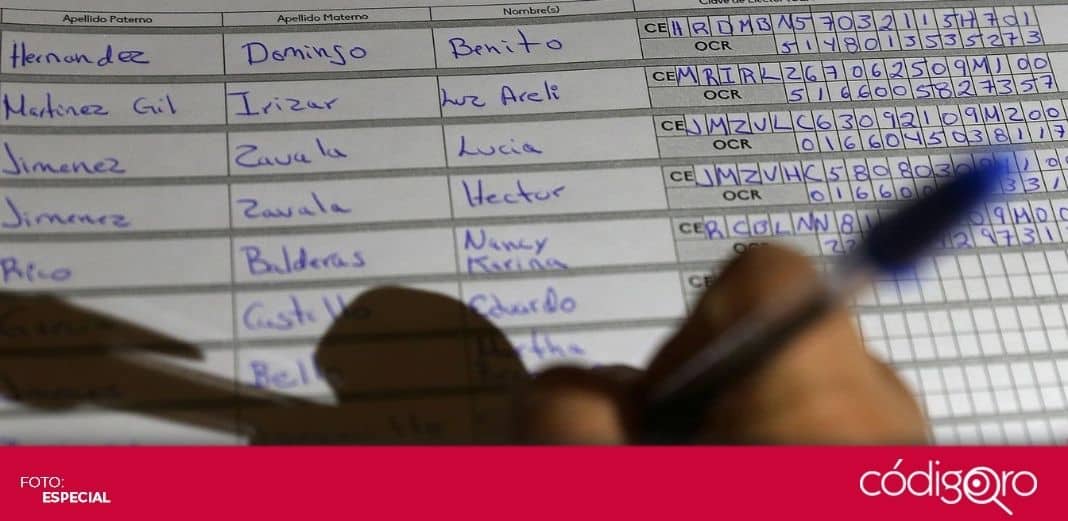 Apellido Paterno Apellido Materno Nombre(s)
Hernandez Domingo Benito CE HRDMBN57032115H701
OCR 5148013535273
Martinez Gil Irizar Luz Areli CE MRIRLZ67062509M100
OCR 5166005827357
Jimenez Zavala Lucia CE JMZVLC63092109M200
OCR 0166045038117
Jimenez Zavala Hector CE JMZVHC580803
OCR 01660 331
Rico Balderas Nancy Karina CE RCBLNN8 09M00
Castillo Eduardo CE
FOTO:
ESPECIAL
códigoqro